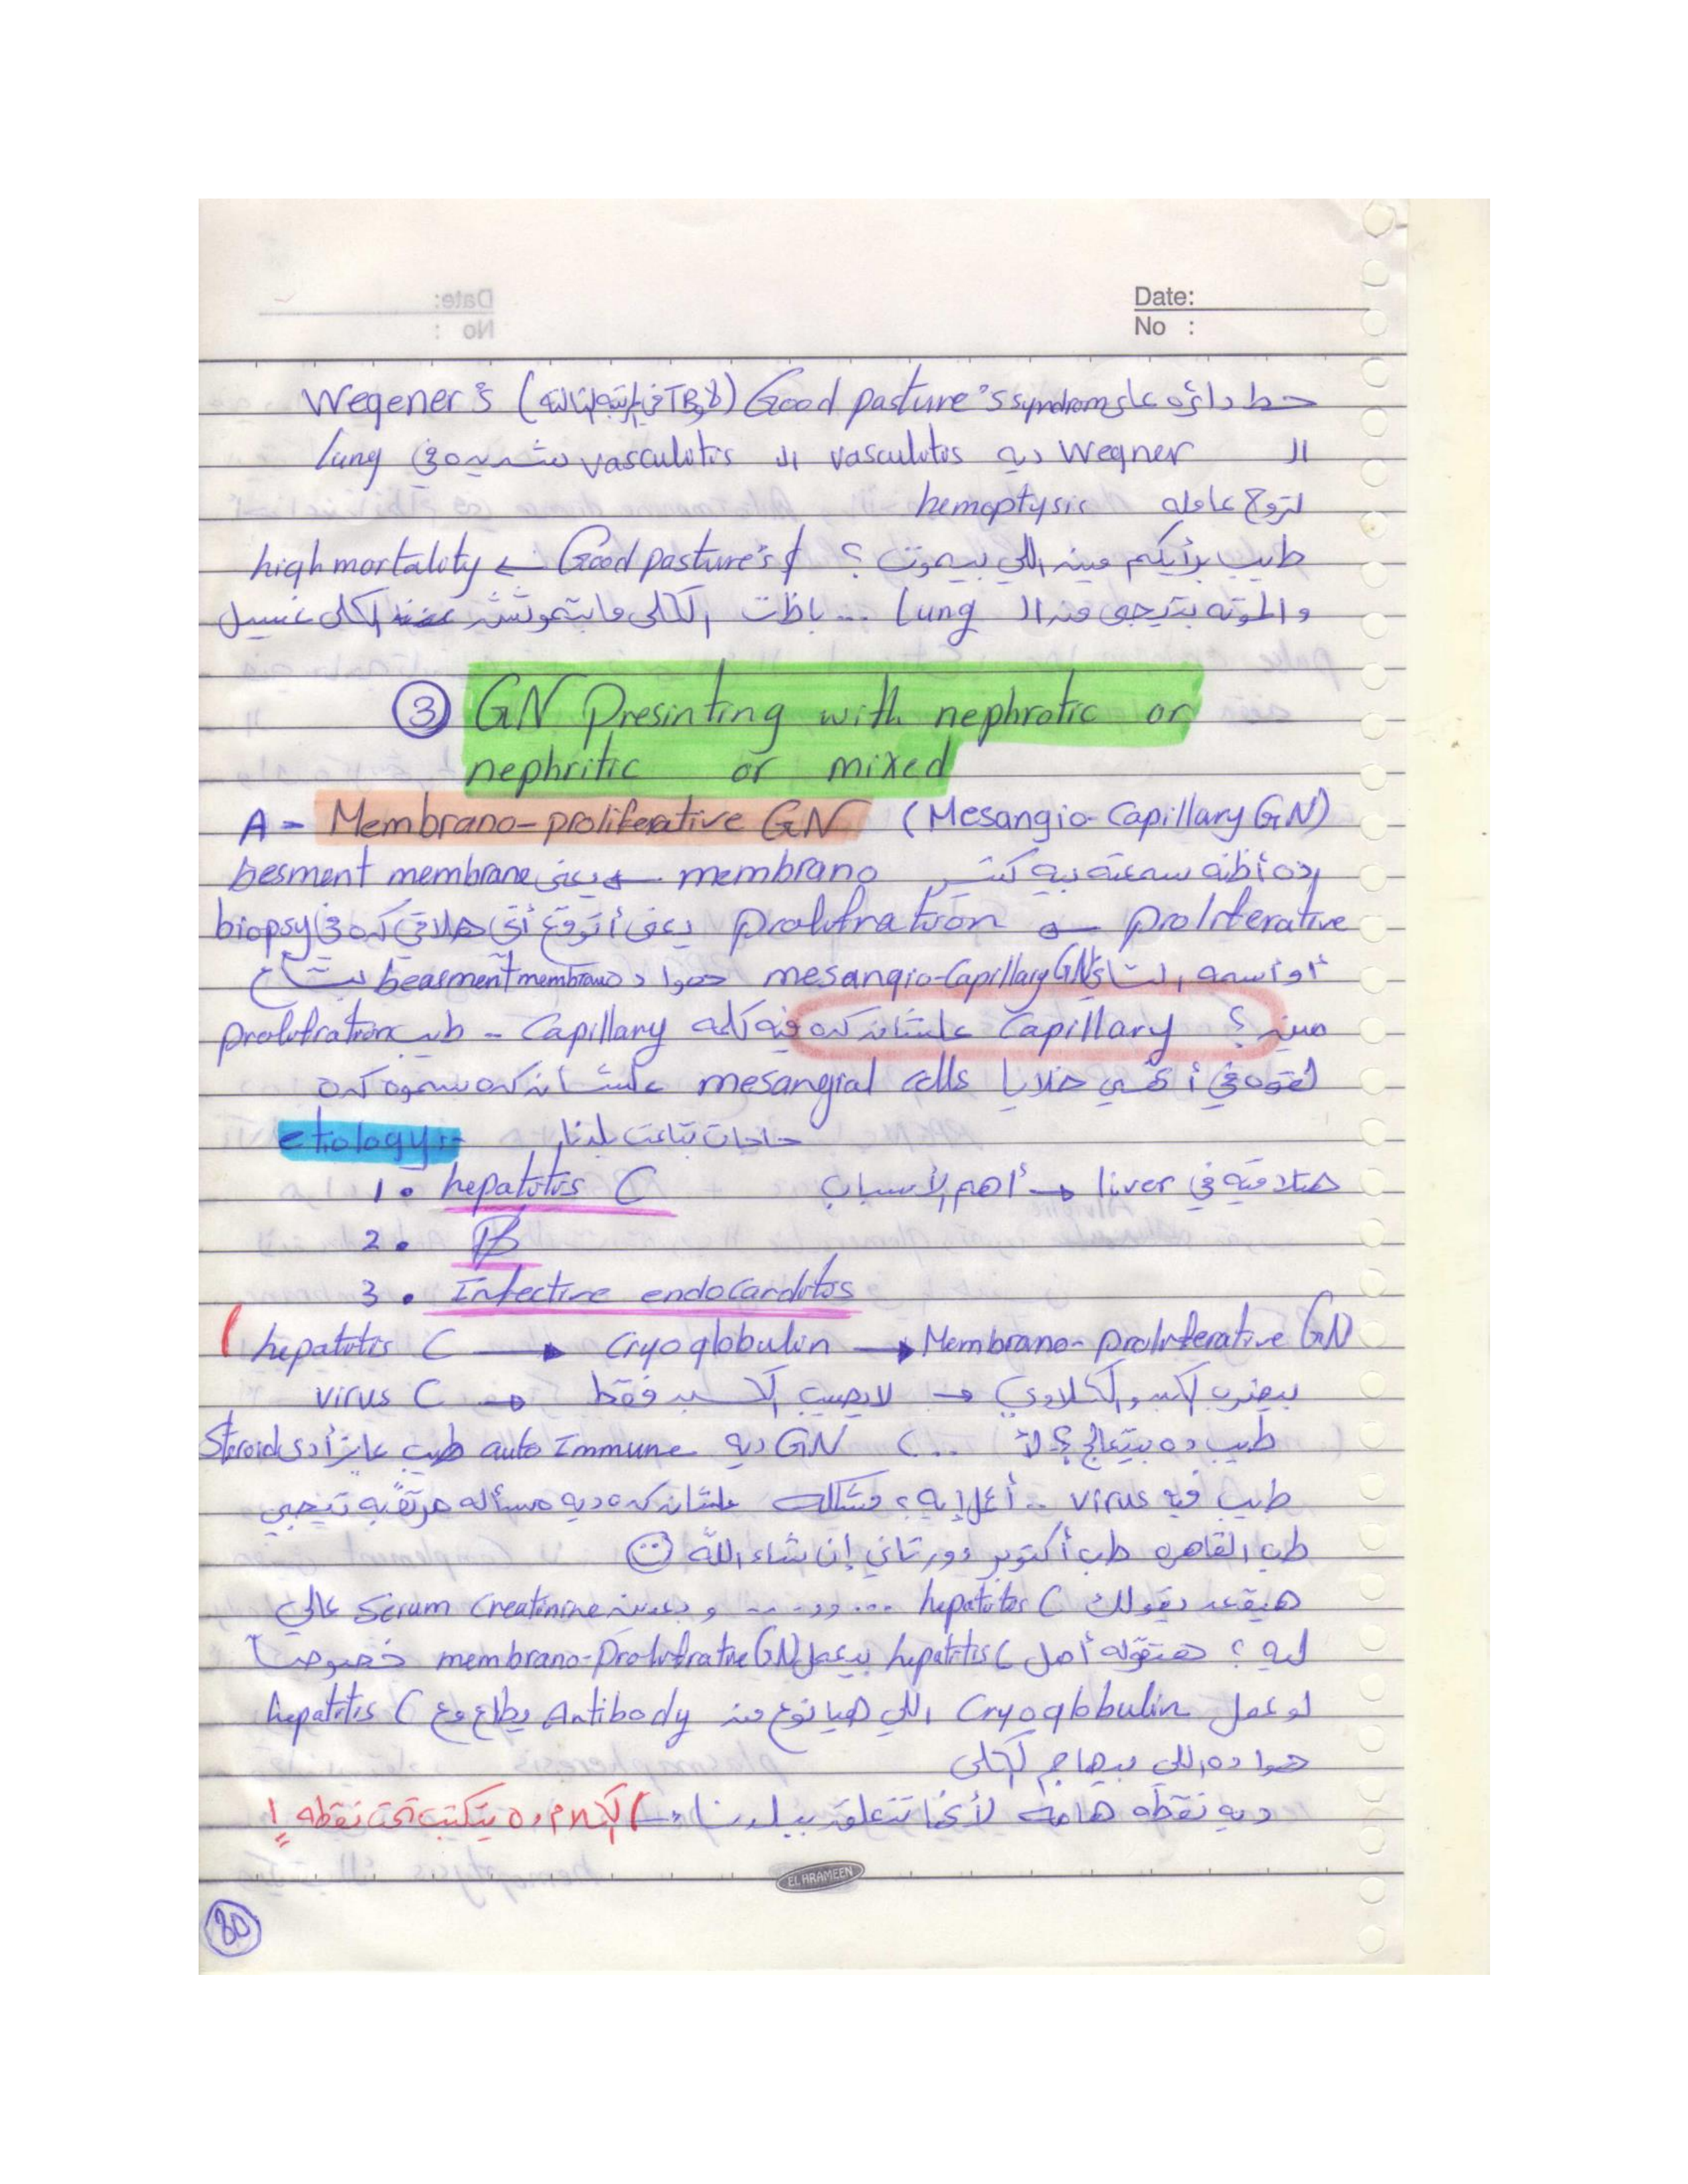 Date:
No :
حط دائره على Good pasture's syndrom (لا و TB في المرتبه التالته) Wegener's
ال Wegner ديه vasculitis ال vasculitis شديده في lung
لتروح عامله hemoptysis
طيب برأيكم مين اللي بيموت ؟ Good pasture's ← high mortality
والموته بتيجى من ال lung ... باظت الكلى مابتموتش الكلى غسيل
③ GN Presinting with nephrotic or
nephritic or mixed
A - Membrano-proliferative GN (Mesangio-Capillary GN)
ده أظنه سمعته بيه كتير membrano ← يعنى besment membrane
proliferative ← prolifration يعنى أتوقع أنى هلاقي كده في biopsy
أو أسمه التاني mesangio-Capillary GN هوا د beasment membrano بتاع
مين ؟ Capillary علشان كده فيه كلمه Capillary - طيب prolifration
لقوه في أنهي خلايا mesangial cells علشان كده سموه كده
etiology:- حاجات بتاعت بلدنا
1. hepatitis C هتلاقيه في liver → أهم الأسباب
2. B
3. Infective endocarditis
hepatitis C → Cryoglobulin → Membrano-proliferative GN
virus C → لايصيب الكبد فقط → بيضرب الكبد والكلاوي
طيب ده بيتعالج ؟ لأ ... ) GN ديه auto Immune طيب عايز أدى Steroids
طيب فيه virus .. أعمل إيه ؟ مشكله علشان كده ديه مسأله مرتقبه تيجي
طب القاهره طب أكتوبر دور تاني إن شاء الله ☺
هيقعد يقولك hepatitis C ... وو .... و بعدين Serum Creatinine عالي
ليه ؟ هتقوله أصل hepatitis C بيعمل membrano-Prolifrative GN خصوصاً
لو عمل Cryoglobulin اللي هيا نوع من Antibody يطلع مع hepatitis C
هوا ده اللي بيهاجم الكلى
ديه نقطه هامه لأنها تتعلق ببلدنا → ) الكلام ده يتكتب تحت نقطه !
EL HRAMEEN
80